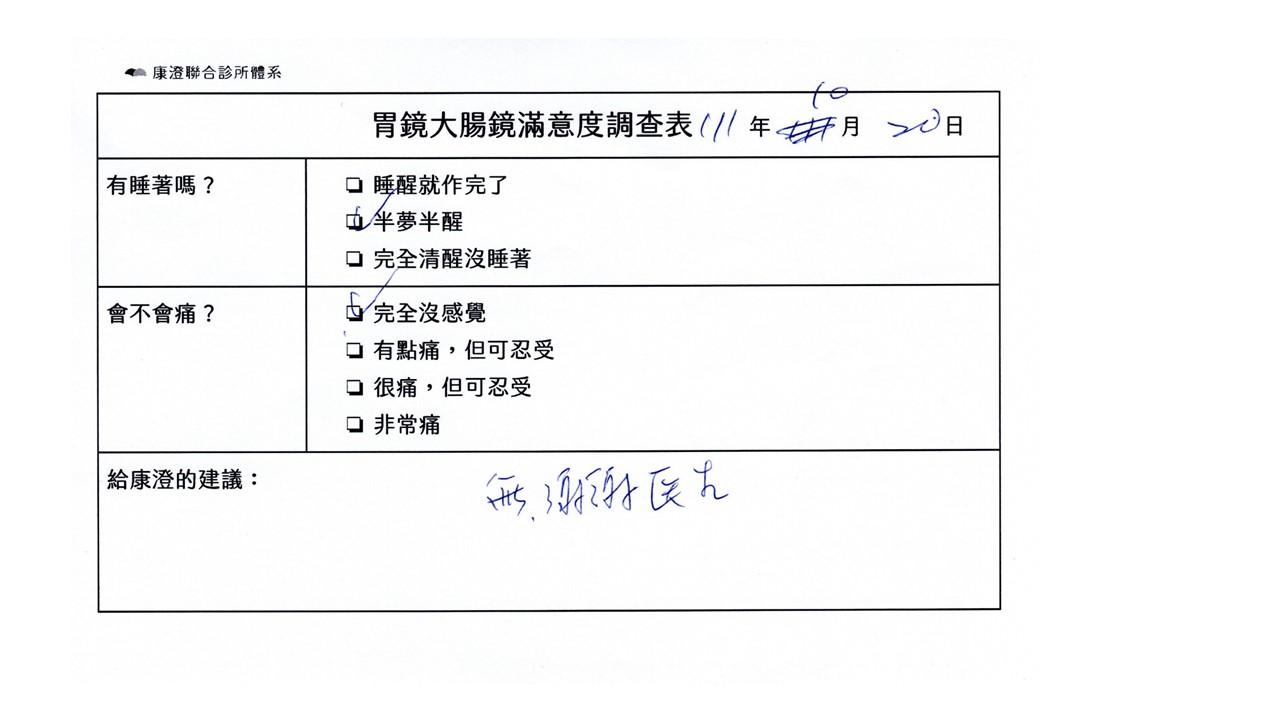 康澄聯合診所體系
胃鏡大腸鏡滿意度調查表 111 年 10 月 20 日
有睡著嗎？
❏ 睡醒就作完了
☑ 半夢半醒
❏ 完全清醒沒睡著
會不會痛？
☑ 完全沒感覺
❏ 有點痛，但可忍受
❏ 很痛，但可忍受
❏ 非常痛
給康澄的建議：
無.謝謝医生